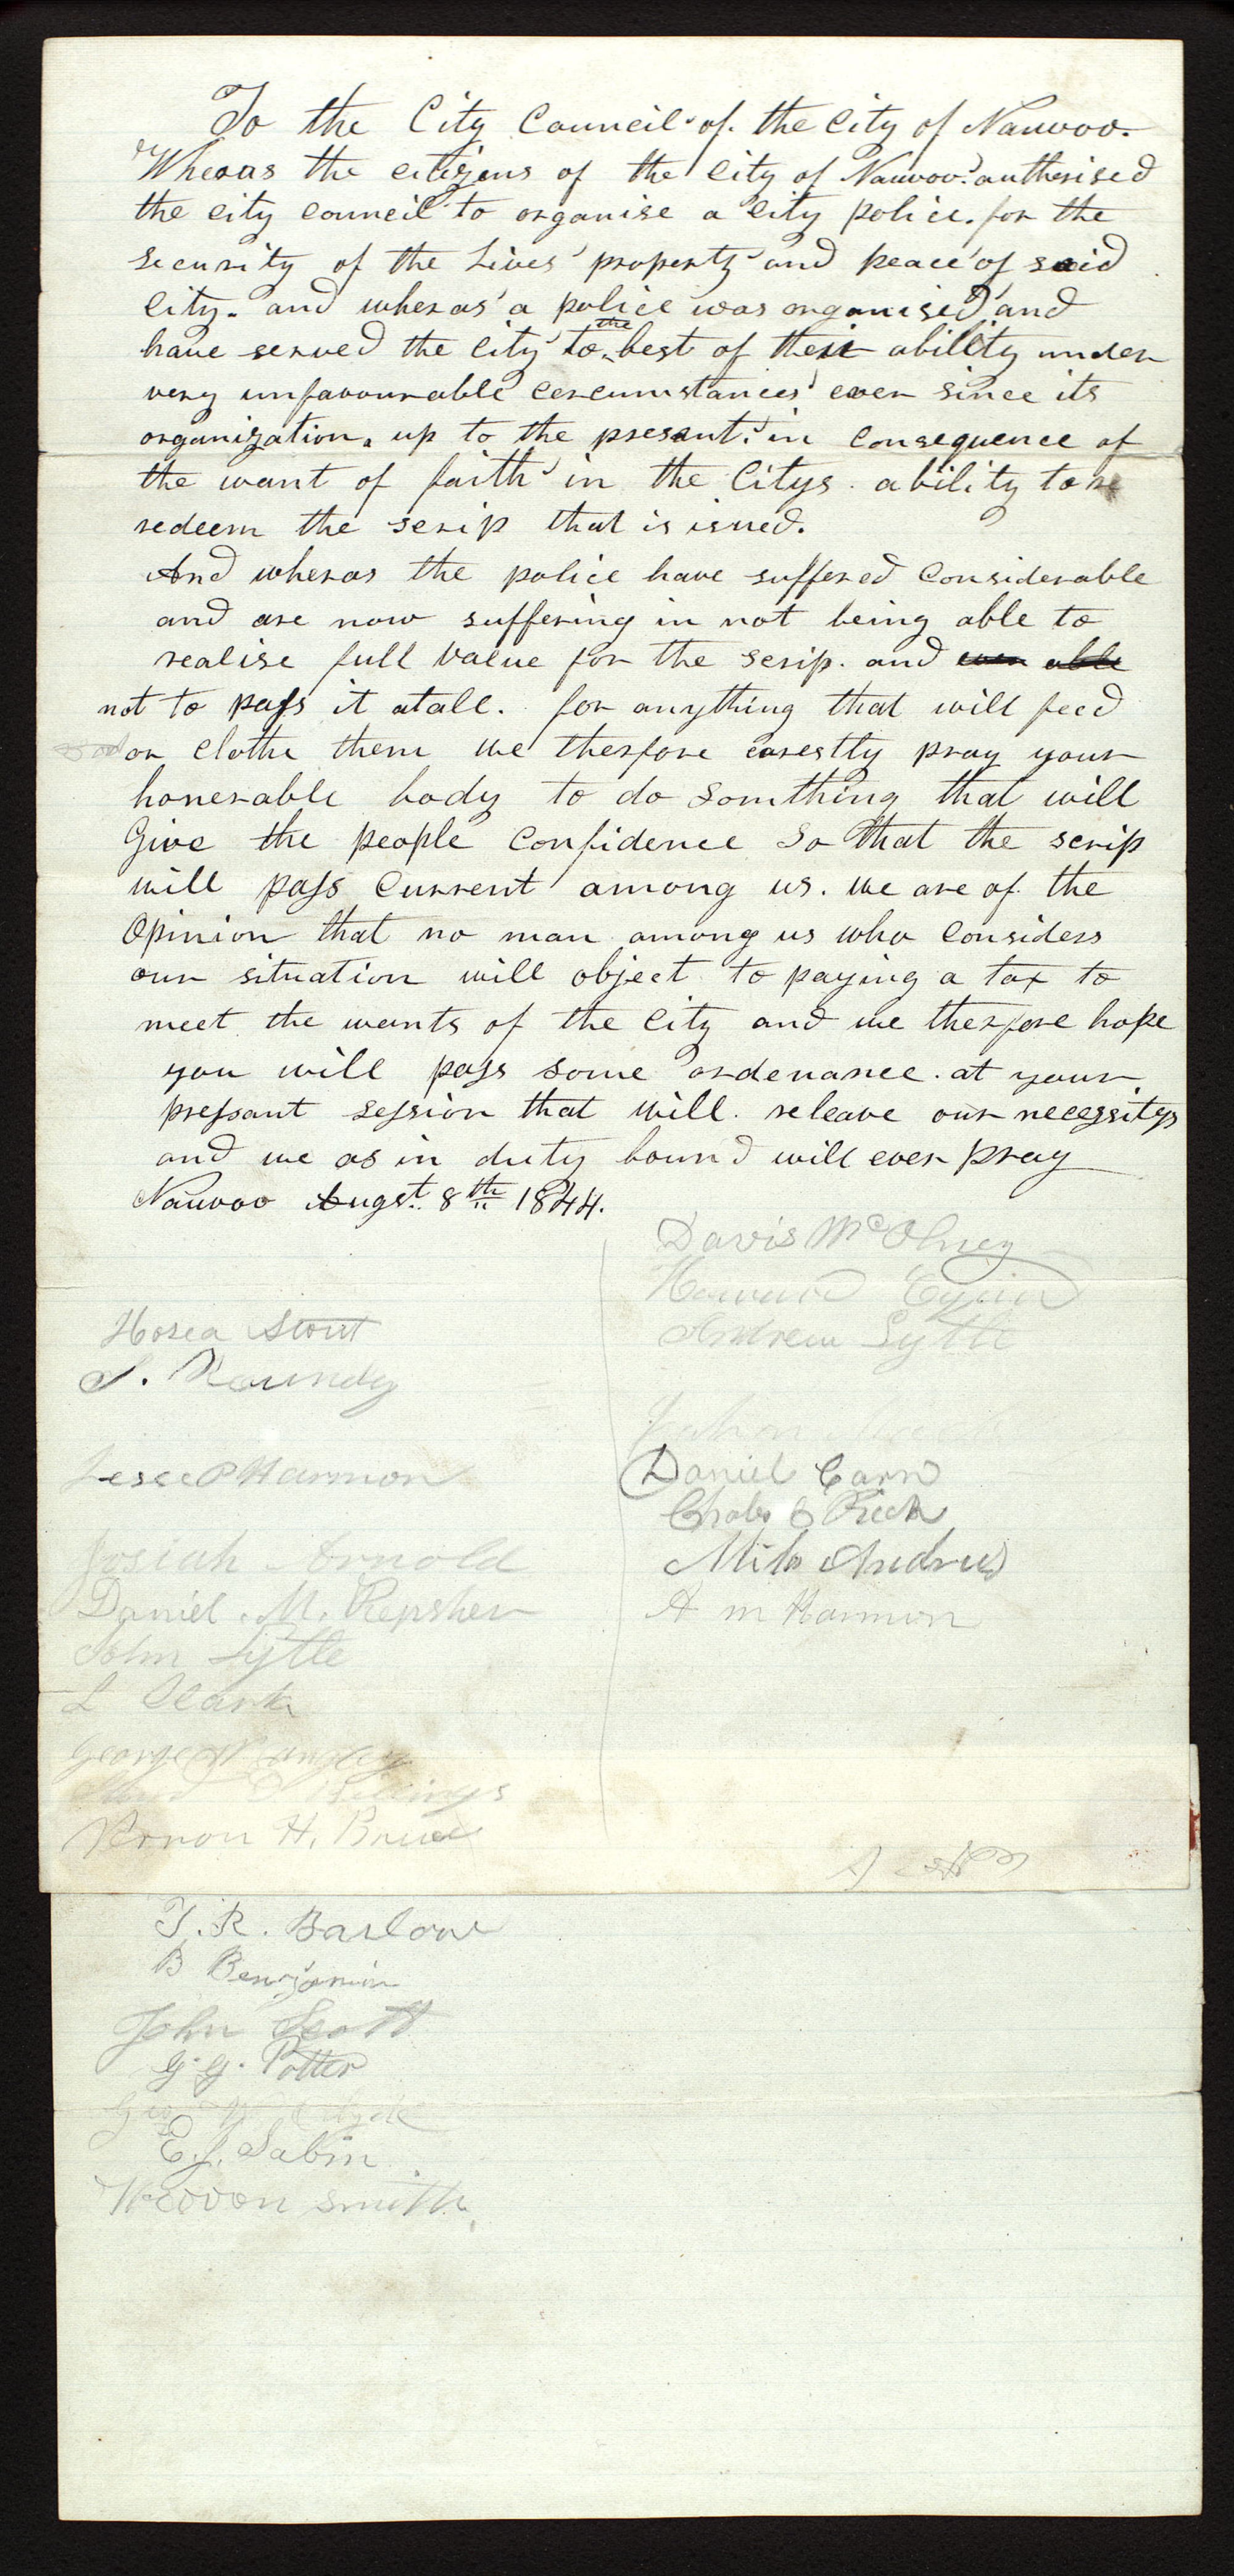 To the City Council of. the City of Nauvoo.
Wheras the citizens of the City of Nauvoo. authorised
the city council to organise a city police. for the
security of the Lives property and peace of said
City. and wheras a police was organised and
the
have served the City to best of their ability under
very unfavourable cercumstances ever since its
organization. up to the presant. in consequence of
the want of faith in the Citys. ability to re
redeem the scrip that is issued.
And wheras the police have suffered Considerable
and are now suffering in not being able to
realise full value for the scrip. and even able
not to pass it atall. for anything that will feed
or Clothe them we therfore earestly pray your
honerable body to do Somthing that will
Give the people Confidence So that the scrip
will pass Current among us. we are of the
Opinion that no man among us who Considers
our situation will object to paying a tax to
meet the wants of the City and we therfore hope
you will pass some ordenance. at your
pressant session that will. releave our necessitys
and we as in duty bound will ever pray
Nauvoo Augst. 8th 1844.
Davis McOlney
Howard Egan
Andrew Lytle
Hosea Stout
S. Roundy
Jesse P Harmon
Daniel Carn
Charles C Rich
Milo Andrus
A m Harmon
Josiah Arnold
Daniel. M. Repsher
John Lytle
L Clark
George W Langley
Vernon H. Bruce
I. R. Barlow
B Benjamin
John Scott
G. G. Potter
E. J. Sabin
Warren Smith